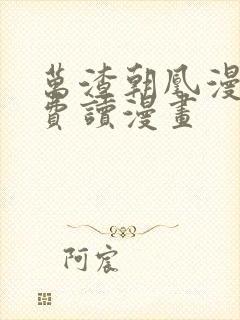 萬渣朝凰漫
費讀漫畫
阿宸